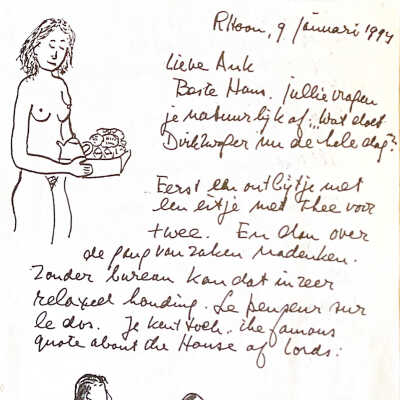 RHoon, 9 januari 1994
Lieve Ank
Beste Hans. jullie vragen
je natuurlijk af: „wat doet
Dirk nu de hele dag?
Eerst een ontbijtje met
een eitje met thee voor
twee. En dan over
de gang van zaken nadenken.
Zonder bureau kan dat in zeer
relaxed houding. Le penseur sur
le dos. Je kent toch.. the famous
quote about the House of Lords: